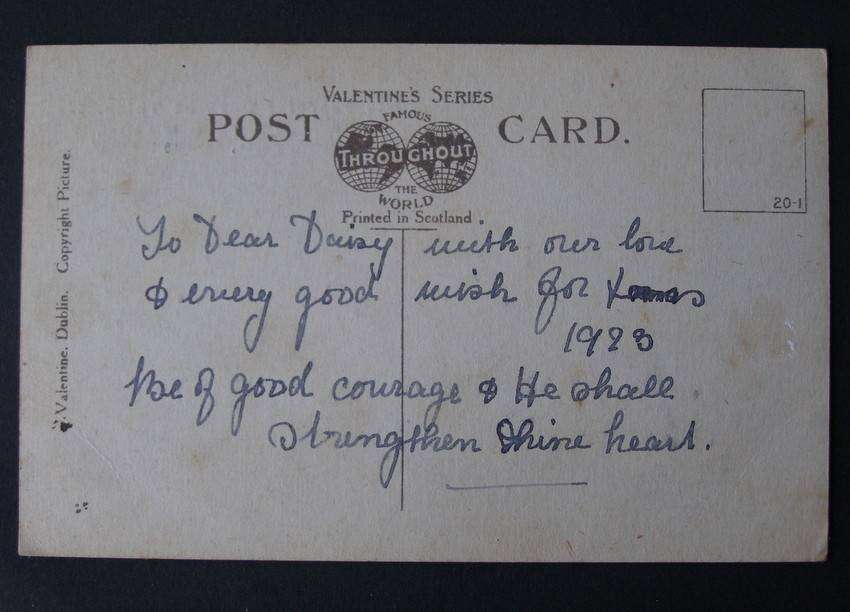 VALENTINE'S SERIES
POST CARD.
FAMOUS
THROUGHOUT
THE
WORLD
Printed in Scotland.
20-1
Valentine. Dublin. Copyright Picture.
To Dear Daisy with our love
& every good wish for Xmas
1923
Be of good courage & He shall
Strengthen thine heart.